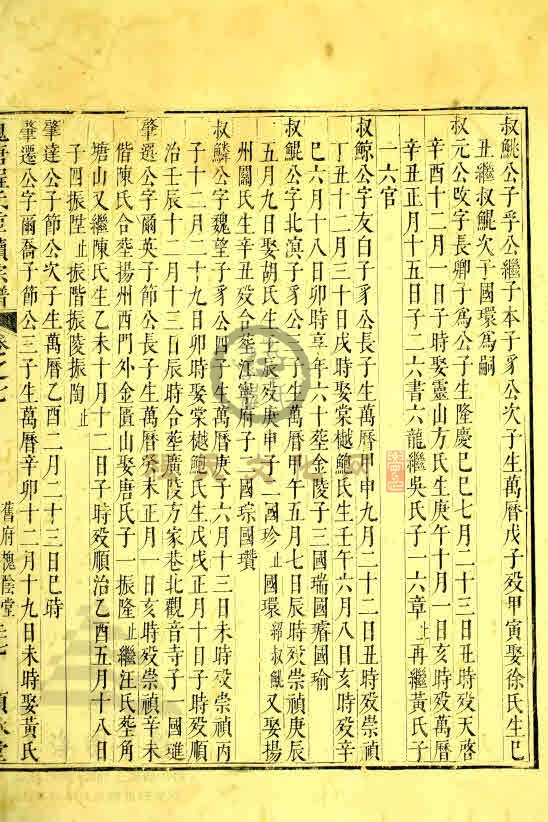 叔鯓公子孚公繼子本子豸公次子生萬曆戊子歿甲寅娶徐氏生巳
丑繼叔鯤次子國環爲嗣
叔元公改字長卿子爲公子生隆慶巳巳七月二十三日丑時歿天啓
辛酉十二月一日子時娶靈山方氏生庚午十月一日亥時歿萬曆
辛丑正月十五日子二六書六龍繼吳氏子一六章止再繼黃氏子
一六官
叔鯨公字友白子豸公長子生萬曆甲申九月二十二日丑時歿崇禎
丁丑十二月三十日戌時娶棠樾鮑氏生壬午六月八日亥時歿辛
巳六月十八日卯時享年六十塟金陵子三國瑞國瓐國瑜
叔鯤公字北溟子豸公三子生萬曆甲午五月七日辰時歿崇禎庚辰
五月九日娶胡氏生壬辰歿庚申子二國珍止國環紹叔又娶揚
州關氏生辛丑歿合塟江寧府子二國琮國瓚
叔鱗公字魏望子豸公四子生萬曆庚子六月十三日未時歿崇禎丙
子十二月二十九日卯時娶棠樾鮑氏生戊戌正月十日子時歿順
治壬辰十一月十三日辰時合塟廣陵方家巷北觀音寺子一國璡
肇選公字爾英子節公長子生萬曆癸未正月一日亥時歿崇禎辛未
偕陳氏合塟揚州西門外金匱山娶唐氏子一振隆止繼汪氏塟角
塘山又繼陳氏生乙未十月十二日子時歿順治乙酉五月十八日
子四振陞止振階振陵振陶止
肇達公子節公次子生萬曆乙酉二月二十三日巳時
肇遷公字爾喬子節公三子生萬曆辛卯十二月十九日未時娶黃氏
舊府槐陰堂